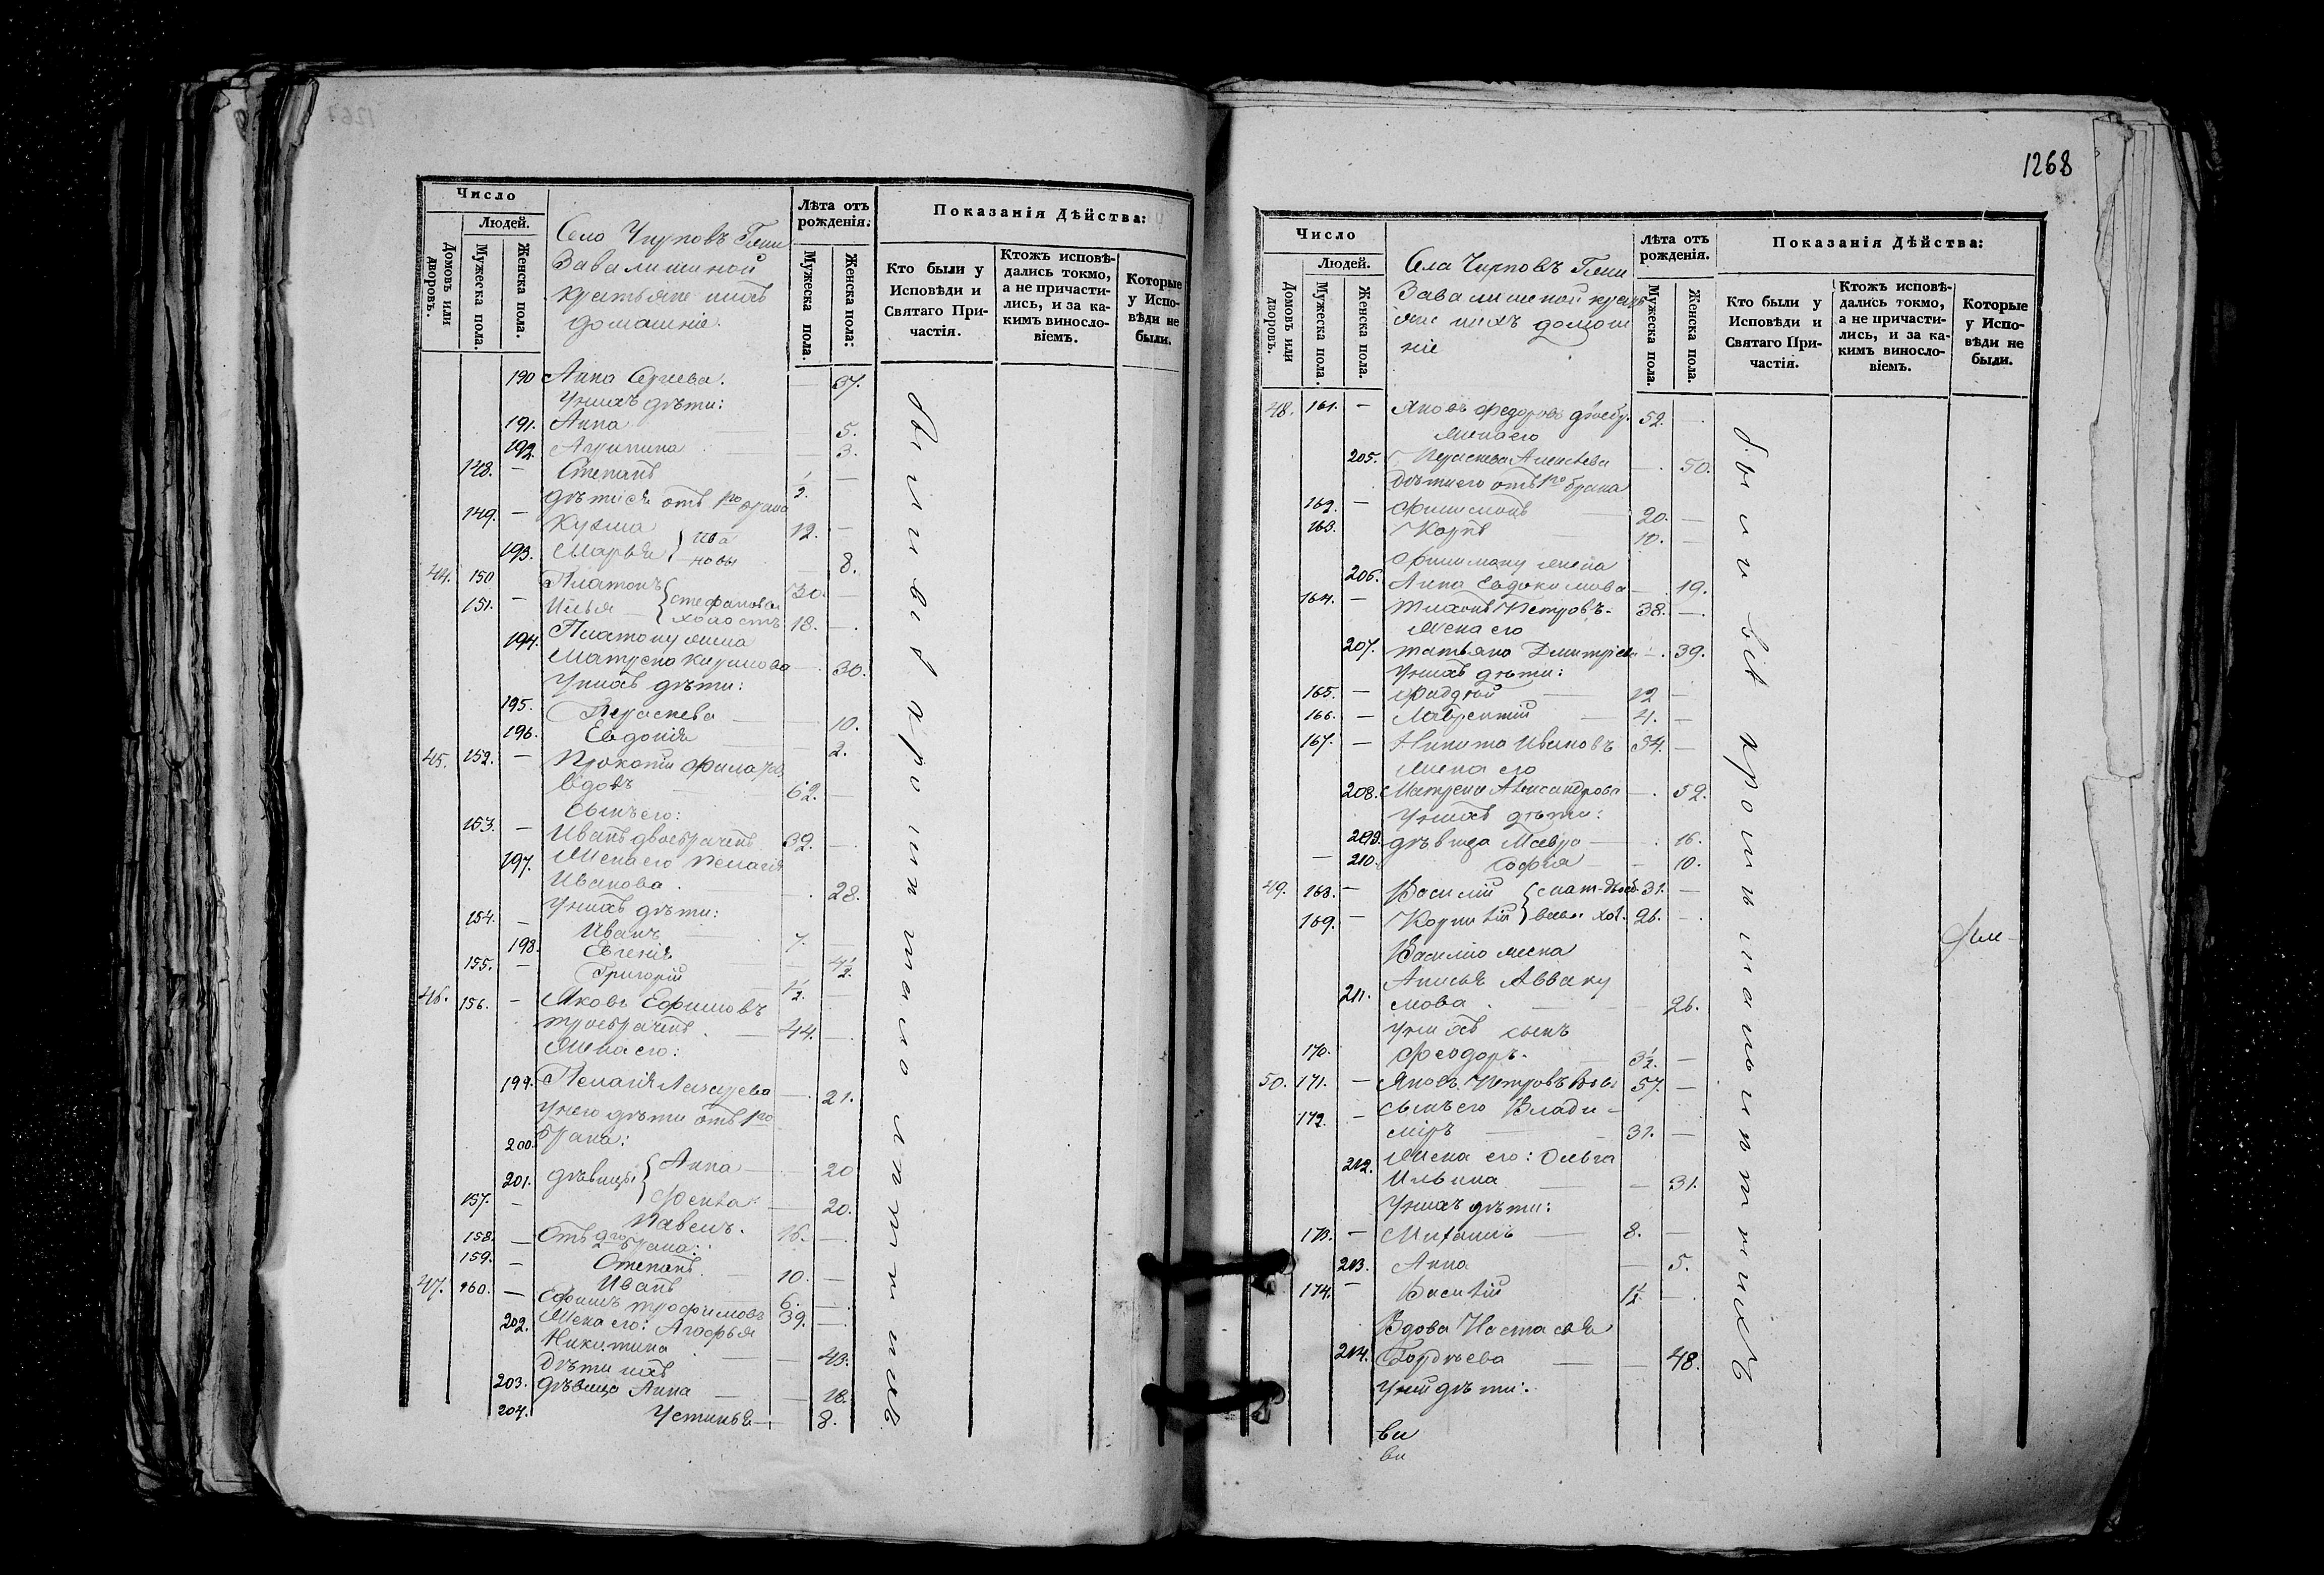 1268
Число
Людей.
Домовъ или дворовъ.
Мужеска пола.
Женска пола.
Село Чирповъ Гпжи
Завалишиной
крестьяне ихъ
домашніе.
Лѣта отъ рожденія:
Мужеска пола.
Женска пола:
Показанія Дѣйства:
Кто были у Исповѣди и Святаго Причастія.
Ктожъ исповѣдались токмо, а не причастились, и за какимъ винословіемъ.
Которые у Исповѣди не были.
190 Анна Сергиева. — 37.
У нихъ дѣти:
191. Анна — 5.
192. Агрипина — 3.
148. — Степанъ ½ —
дѣти его отъ 1го брака
149. — Кузма 12. —
193. Марья } Ива новы — 8.
44. 150 Платонъ 30. —
151. — Илья { Стефановы холостъ 18. —
Платону жена
194. Матрена Кирилова — 30.
У нихъ дѣти:
195. Параскева — 10.
196. Евдокія — 2.
45. 152. — Прокопій
вдовъ 62. —
сынъ его:
153. — Иванъ двоебраченъ 32. —
197. Жена его Пелагія
Иванова. 28.
У нихъ дѣти:
154. — Иванъ 7. —
198. Евгенія — 4½
155. — Григорій 1½ —
46. 156. — Яковъ Ефимовъ
троебраченъ. — 44. —
Жена его:
199. Пелагія Лазарева — 21.
У него дѣти отъ 1го
брака:
200. Анна — 20
201. дѣвицы { Фекла — 20.
157. — Павелъ. 16. —
Отъ 2го брака:
158. — Степанъ. 10. —
159. — Иванъ 6. —
47. 160. — Ефимъ Трофимовъ 39. —
202. Жена его: Агафья
Никитина — 43.
Дѣти ихъ
203. дѣвица Анна — 18.
204. Устинья — 8.
были вси и причастились
Число
Людей.
Домовъ или дворовъ.
Мужеска пола.
Женска пола.
Села Чирповъ Гпжи
Завалишиной кресть
яне ихъ домаш
ніе
Лѣта отъ рожденія.
Мужеска пола.
Женска пола.
Показанія Дѣйства:
Кто были у Исповѣди и Святаго Причастія.
Ктожъ исповѣдались токмо, а не причастились, и за какимъ винословіемъ.
Которые у Исповѣди не были.
48. 161. — Яковъ Федоровъ двоебр. 52. —
жена его
205. Параскева Алексѣева — 50.
Дѣти его отъ 1го брака
162. — Филимонъ 20. —
163. Карпъ 10. —
Филимону жена
206. Анна Евдокимова — 19.
164. — Тихонъ Петровъ. 38. —
Жена его
207. Татьяна Димитріева — 39.
У нихъ дѣти:
165. — Фаддѣй — 12 —
166. — Лаврентій — 4. —
167. — Никита Ивановъ 54. —
Жена его
208. Матрена Александрова — 52.
У нихъ дѣти:
209. дѣвица Мавра — 16.
210. Софія — 10.
49. 168. — Василій 31. —
169. — 26. —
Василію жена
Анисья Авваку
211. мова — 26.
У нихъ сынъ
170. Феодоръ. 3½ —
50. 171. — Яковъ Петровъ вдов. 57. —
172. — сынъ его Влади-
міръ — 31. —
212. Жена его: Ольга
Ильина — 31.
У нихъ дѣти:
173. — Михаилъ — 8. —
213. Анна — 5.
174. — Василій 1½ —
Вдова Настасья
214. Гордѣева — 48.
У ней дѣти: